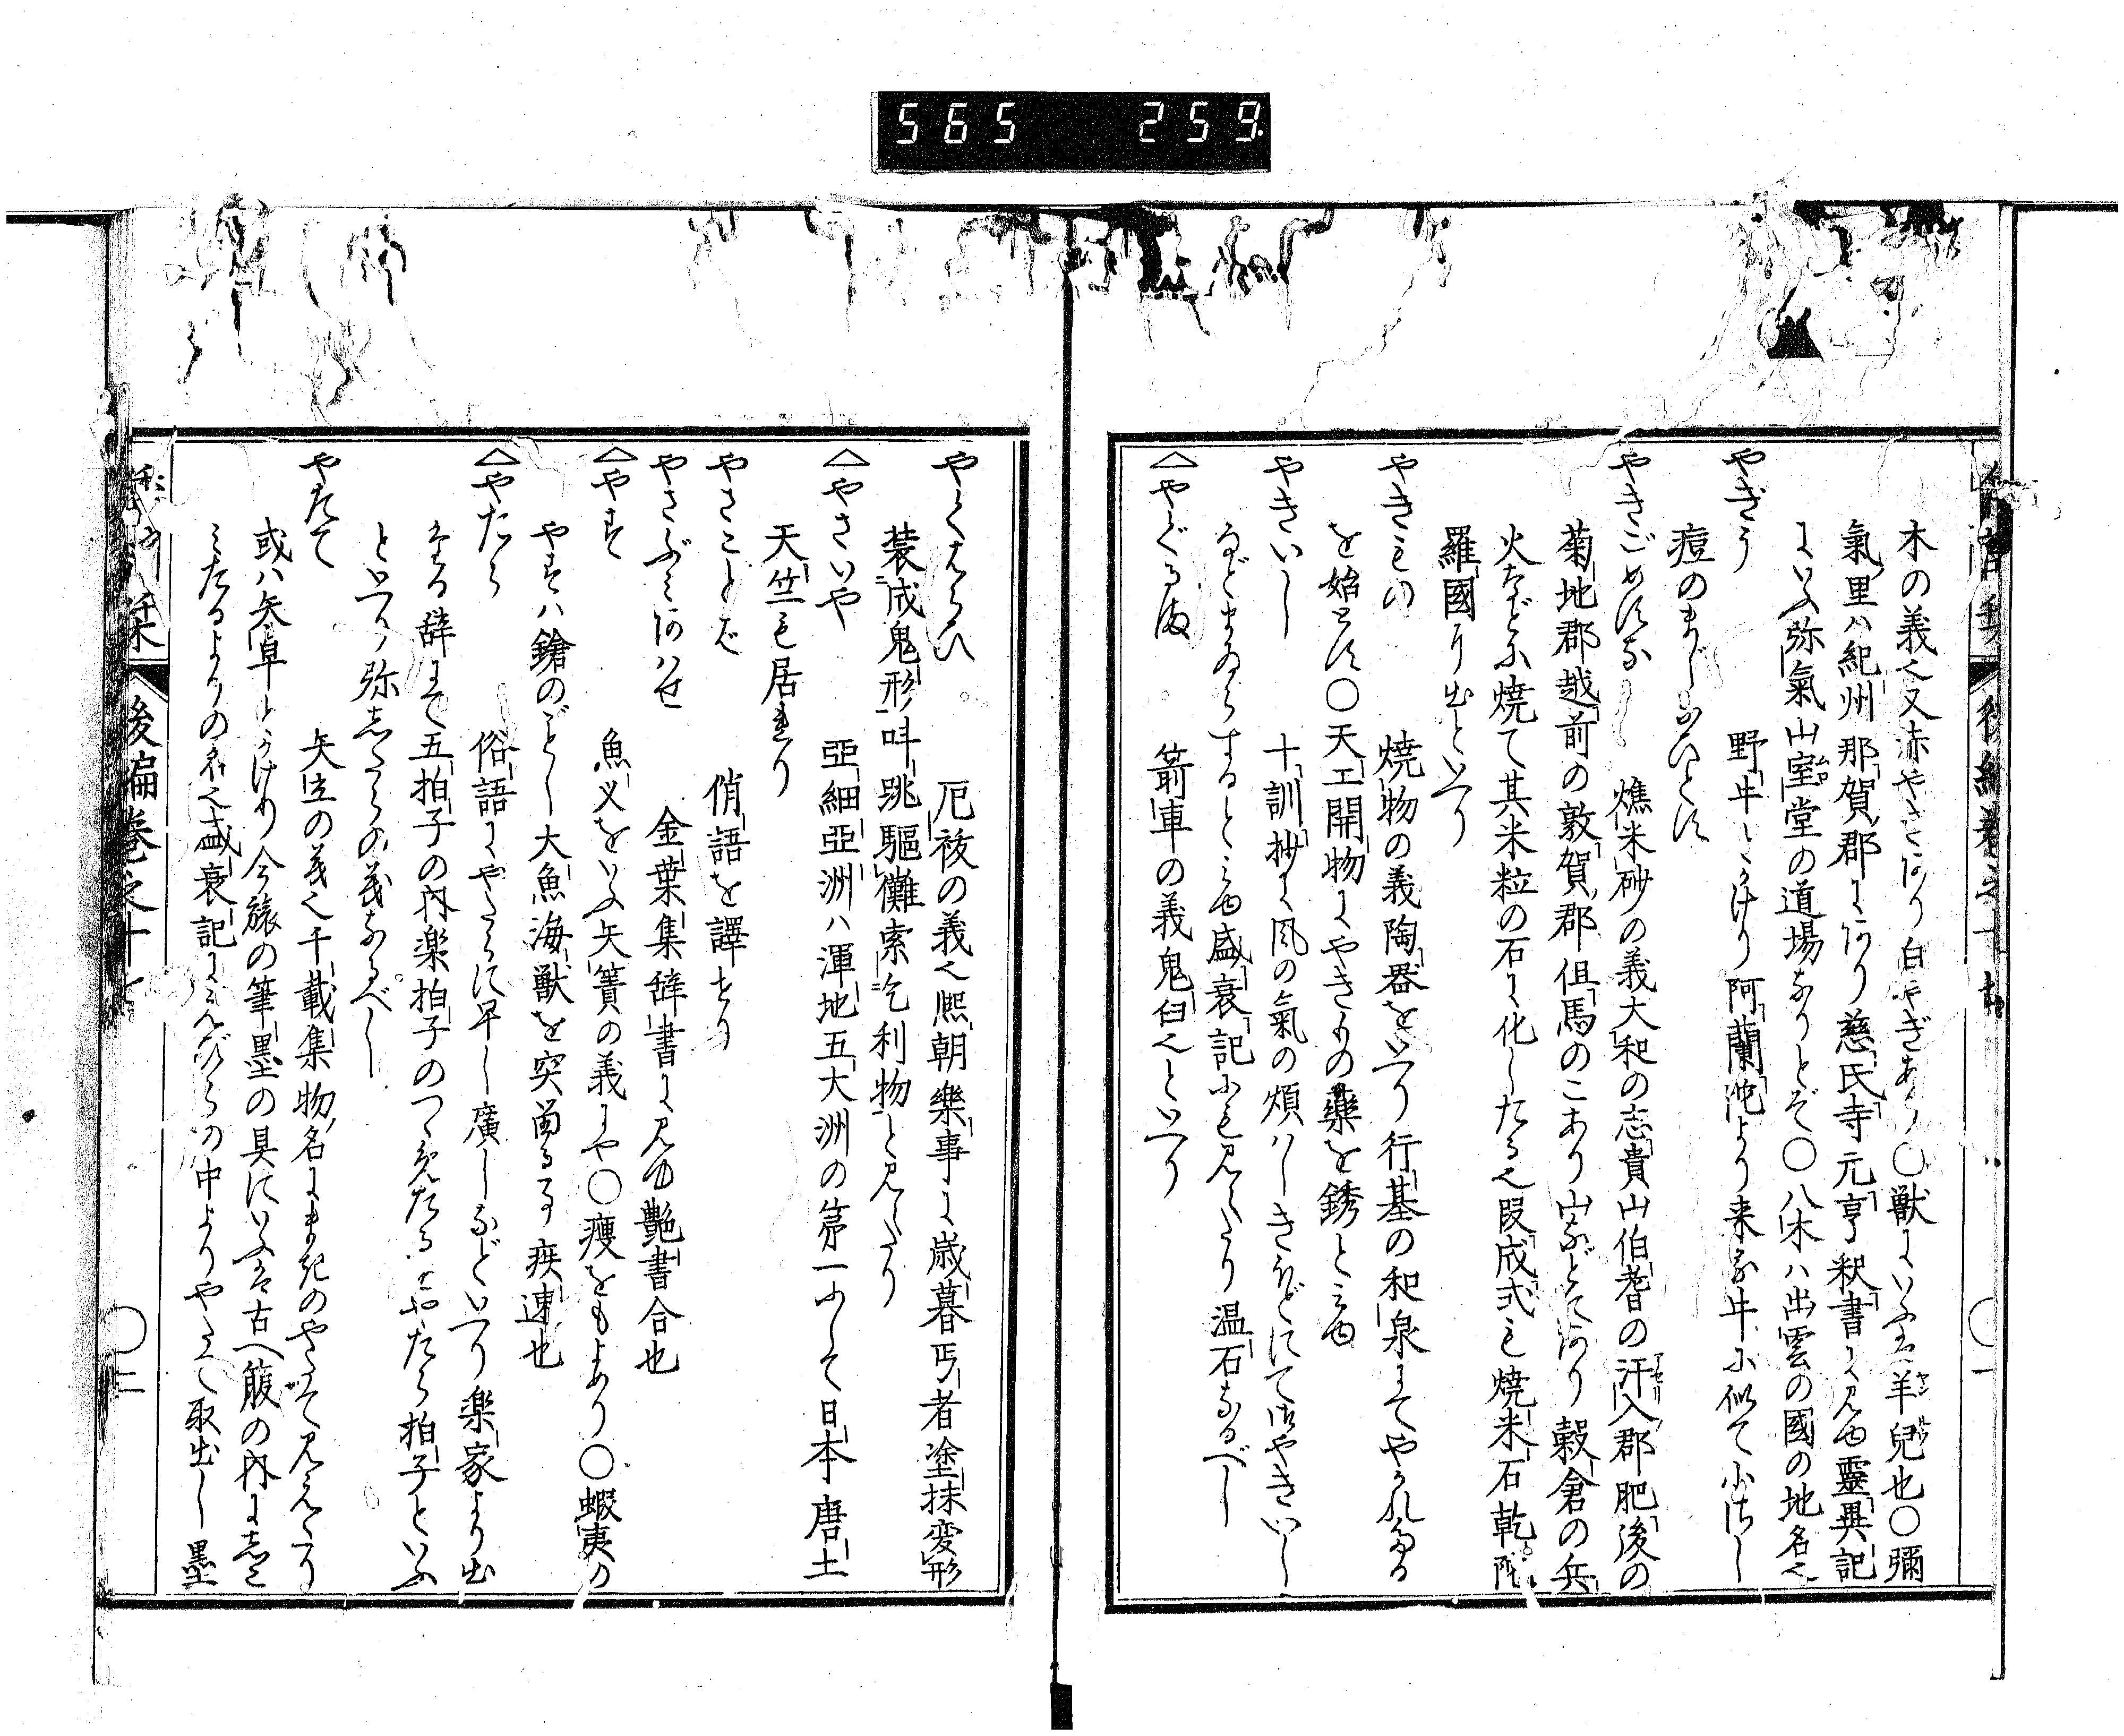 565 259
木の義也又赤やぎあり白やぎあり〇獣にいふは羊兒也〇彌
ヤンルウ
氣里ハ紀州那賀郡にあり慈氏寺元亨釈書に見ゆ靈異記
にいふ弥氣山室堂の道場なりとぞ〇八木ハ出雲の國の地名也
ムロ
やぎう 野牛とかけり阿蘭陀より来る牛に似て小さし
痘のまじなひとす
やきごめすな 燋米砂の義大和の志貴山伯耆の汗入郡肥後の
アセリ
菊地郡越前の敦賀郡但馬のこあり山などにあり穀倉の兵
火などに焼て其米粒の石に化したる也段成式も焼米石乾陀
羅國に出といへり
やきもの 焼物の義陶器をいへり行基の和泉にてやかれたる
を始とす〇天工開物にやきもの藥を銹とみゆ
やきいし 十訓抄に風の氣の煩ハしきほどにて御やきいし
などまゐらするとみゆ盛衰記にも見えたり温石なるべし
△やぐるま 箭車の義鬼臼也といへり
後編巻之十七
〇一
やくはらひ 厄祓の義也熈朝樂事に歳暮丐者塗抹変形
装成鬼形叫跳驅儺索乞利物と見えたり
△やさいや 亞細亞洲ハ渾地五大洲の第一にして日本唐土
天竺も居れり
やさことば 俏語を譯せり
やさぶみあはせ 金葉集辞書に見ゆ艶書合也
△やす 魚义をいふ矢簀の義にや〇痩をもよめり〇蝦夷の
やすハ鎗のごとし大魚海獣を突留る事疾速也
△やたら 俗語にやたらに早し廣しなどいへり楽家より出
たる辞にて五拍子の内楽拍子のつゞきたるをやたら拍子といふ
といへり弥あたらの義なるべし
やたて 矢立の義也千載集物名にまきのやたて見えたり
或ハ矢阜とかけり今旅の筆墨の具にいふは古へ箙の内にあと
みたるよりの名也盛衰記にえびらの中よりやたて取出し墨
後編巻之十七
〇二